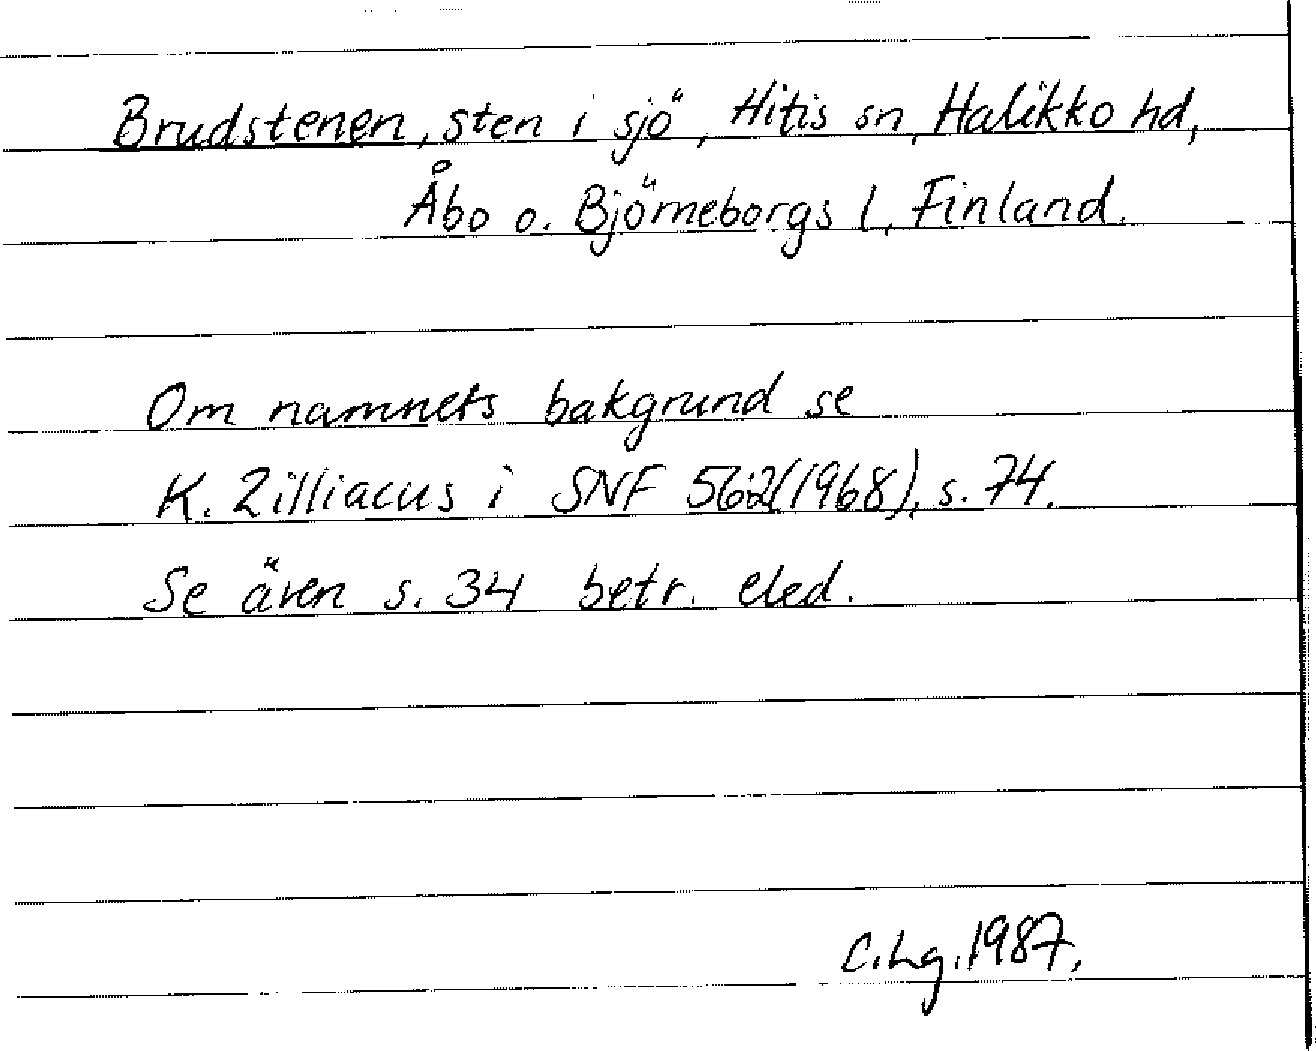 Brudstenen, sten i sjö, Hitis sn, Halikko hd,
Åbo o. Björneborgs l, Finland.
Om namnets bakgrund se
K. Zilliacus i SNF 56:2(1968), s. 74.
Se även s. 34 betr. eled.
C.Lg. 1987.